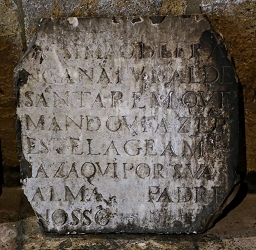 NATVRAL DE
SANTAREM QVE
MANDOV FAZER
ESTELAGEAM
IAZ AQVI POR SVA
ALMA PADRE
NOSSO